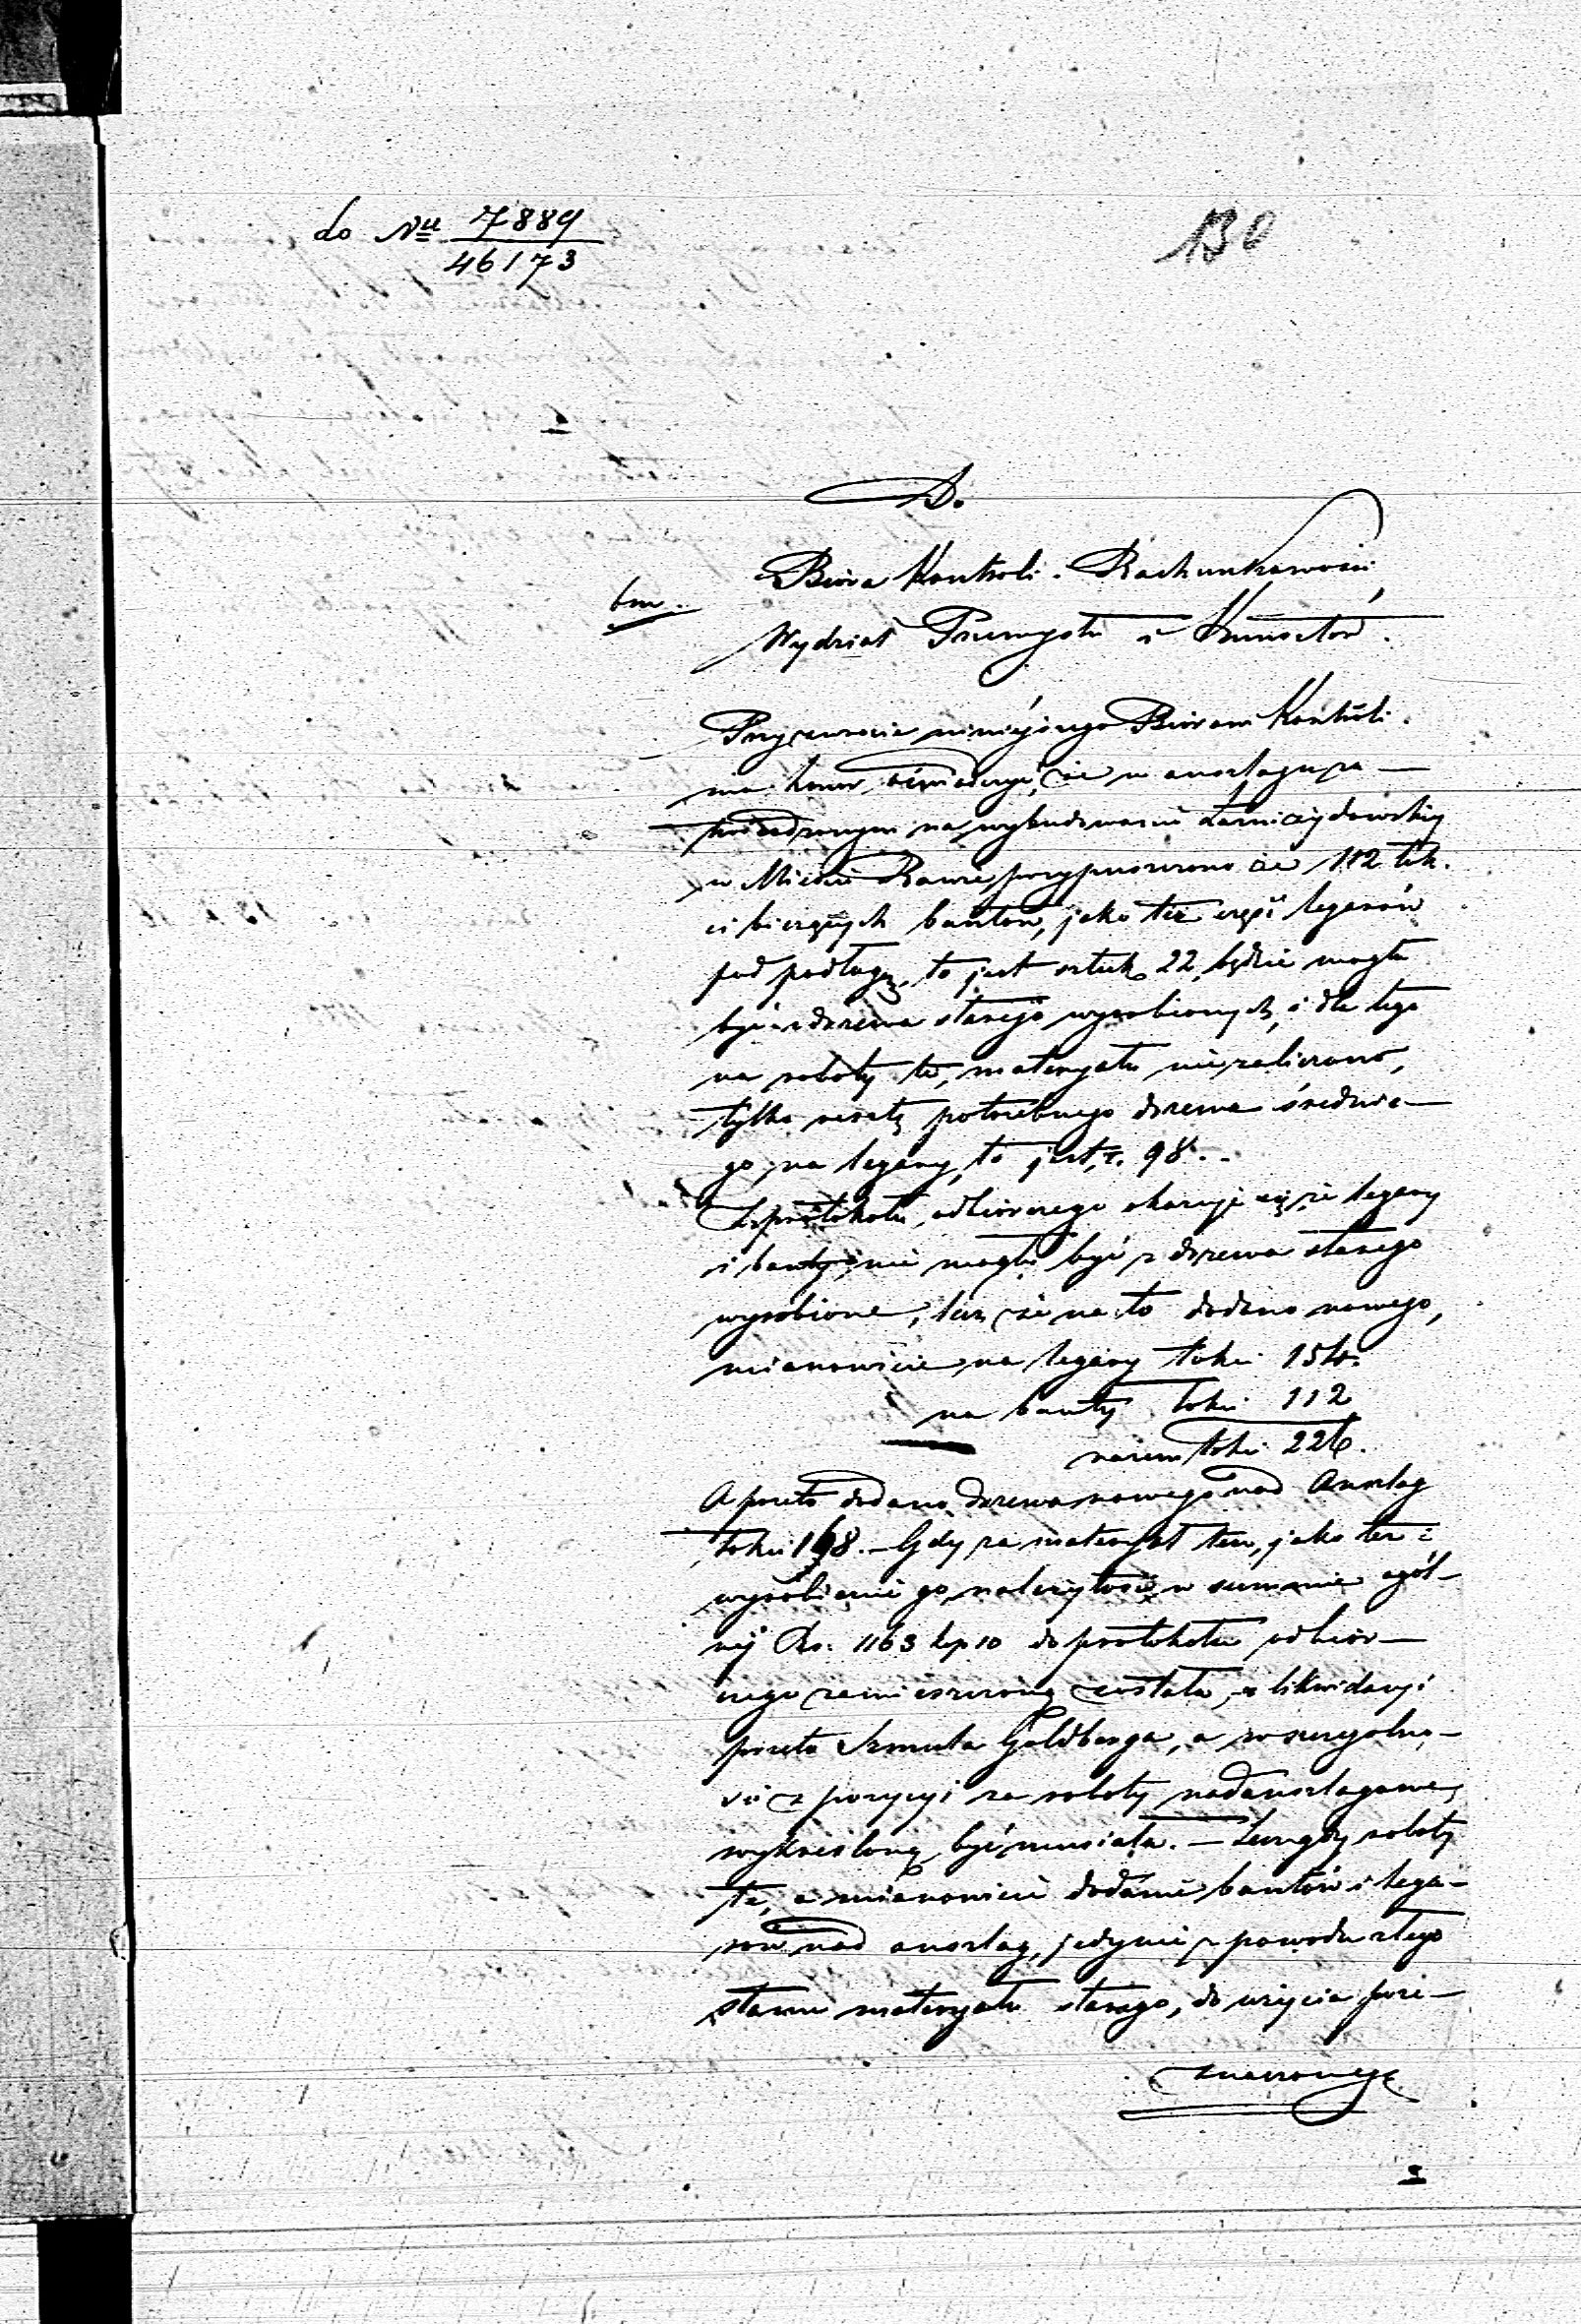 do Nu 7889
46173
130
Do
Biora Kontroli. Rachunkowości
bm.
Wydział Przemysłu i Kunsztów.
Przy zwrocie niniejszego Biorowi Kontroli.
ma honor oświadczyć, że w anszlagu za-
twierdzonym na wybudowanie Łaźni żydowskiej
w Mieście Rawie, przypuszczono że 112 łok.
ci bieżących bantów, jako też część legarów
pod podłogę, to jest sztuk 22, będzie mogła
być z drzewa starego wyrobionych, i dla tego
na roboty te, materyału nie zaliczono,
tylko resztę potrzebnego drzewa średnie-
go, na legary, to jest, ł. 98.
Z protokołu odbiorczego okazuje się, że legary
i banty nie mogły być z drzewa starego
wyrobione, lecz że na to dodano nowego,
mianowicie na legary łokci 154.
na banty łokci 112
razem łokci 226.
A przeto dodano drzewa nowego nad Anszlag
łokci 168. - Gdy za materyał ten, jako też i
wyrobienie go, należytość w summie ogól-
nej Rs. 1163 kop 10 do protokołu odbior-
czego zamieszczoną została, z likwidacyi
przeto Szmula Goldberga, a w szczególno-
ści z pozycyi za roboty nadanszlagowe,
wykreśloną być musiała. - Lecz gdy roboty
te, a mianowicie dodanie bantów i lega-
rów nad anszlag, jedynie z powodu złego
stanu materyału starego, do użycia prze-
znaczonego